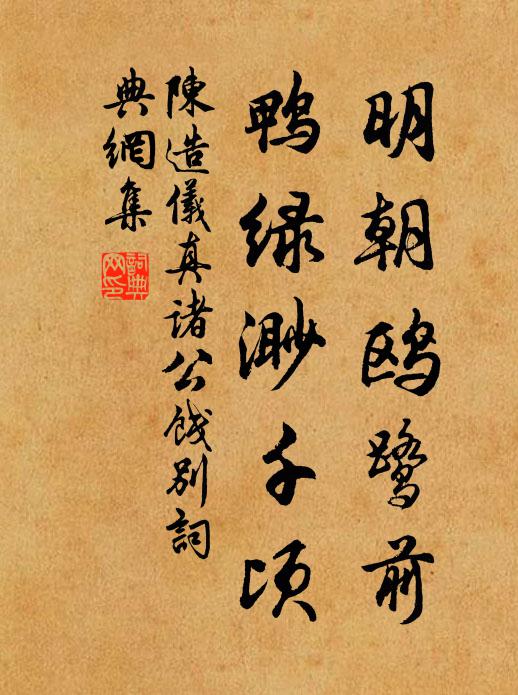 明朝鸥鹭前
鸭绿渺千顷
陳造儀真诸公餞别詞
典網集
詞典网印